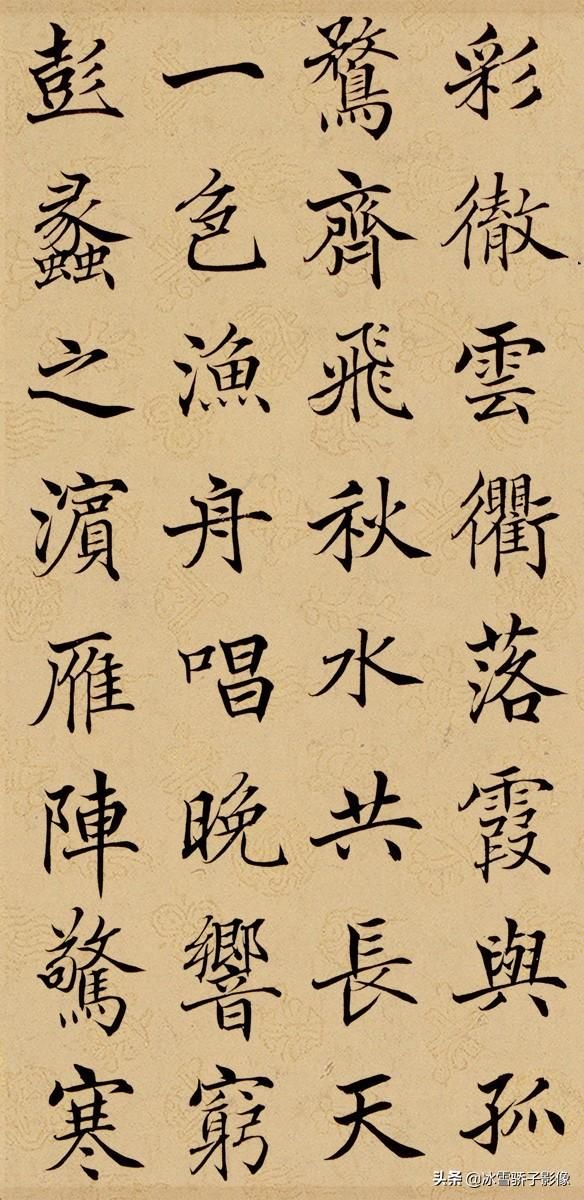 彩徹雲衢落霞與孤
鶩齊飛秋水共長天
一色漁舟唱晚響窮
彭蠡之濵雁陣驚寒
头条 @冰雪骄子影像